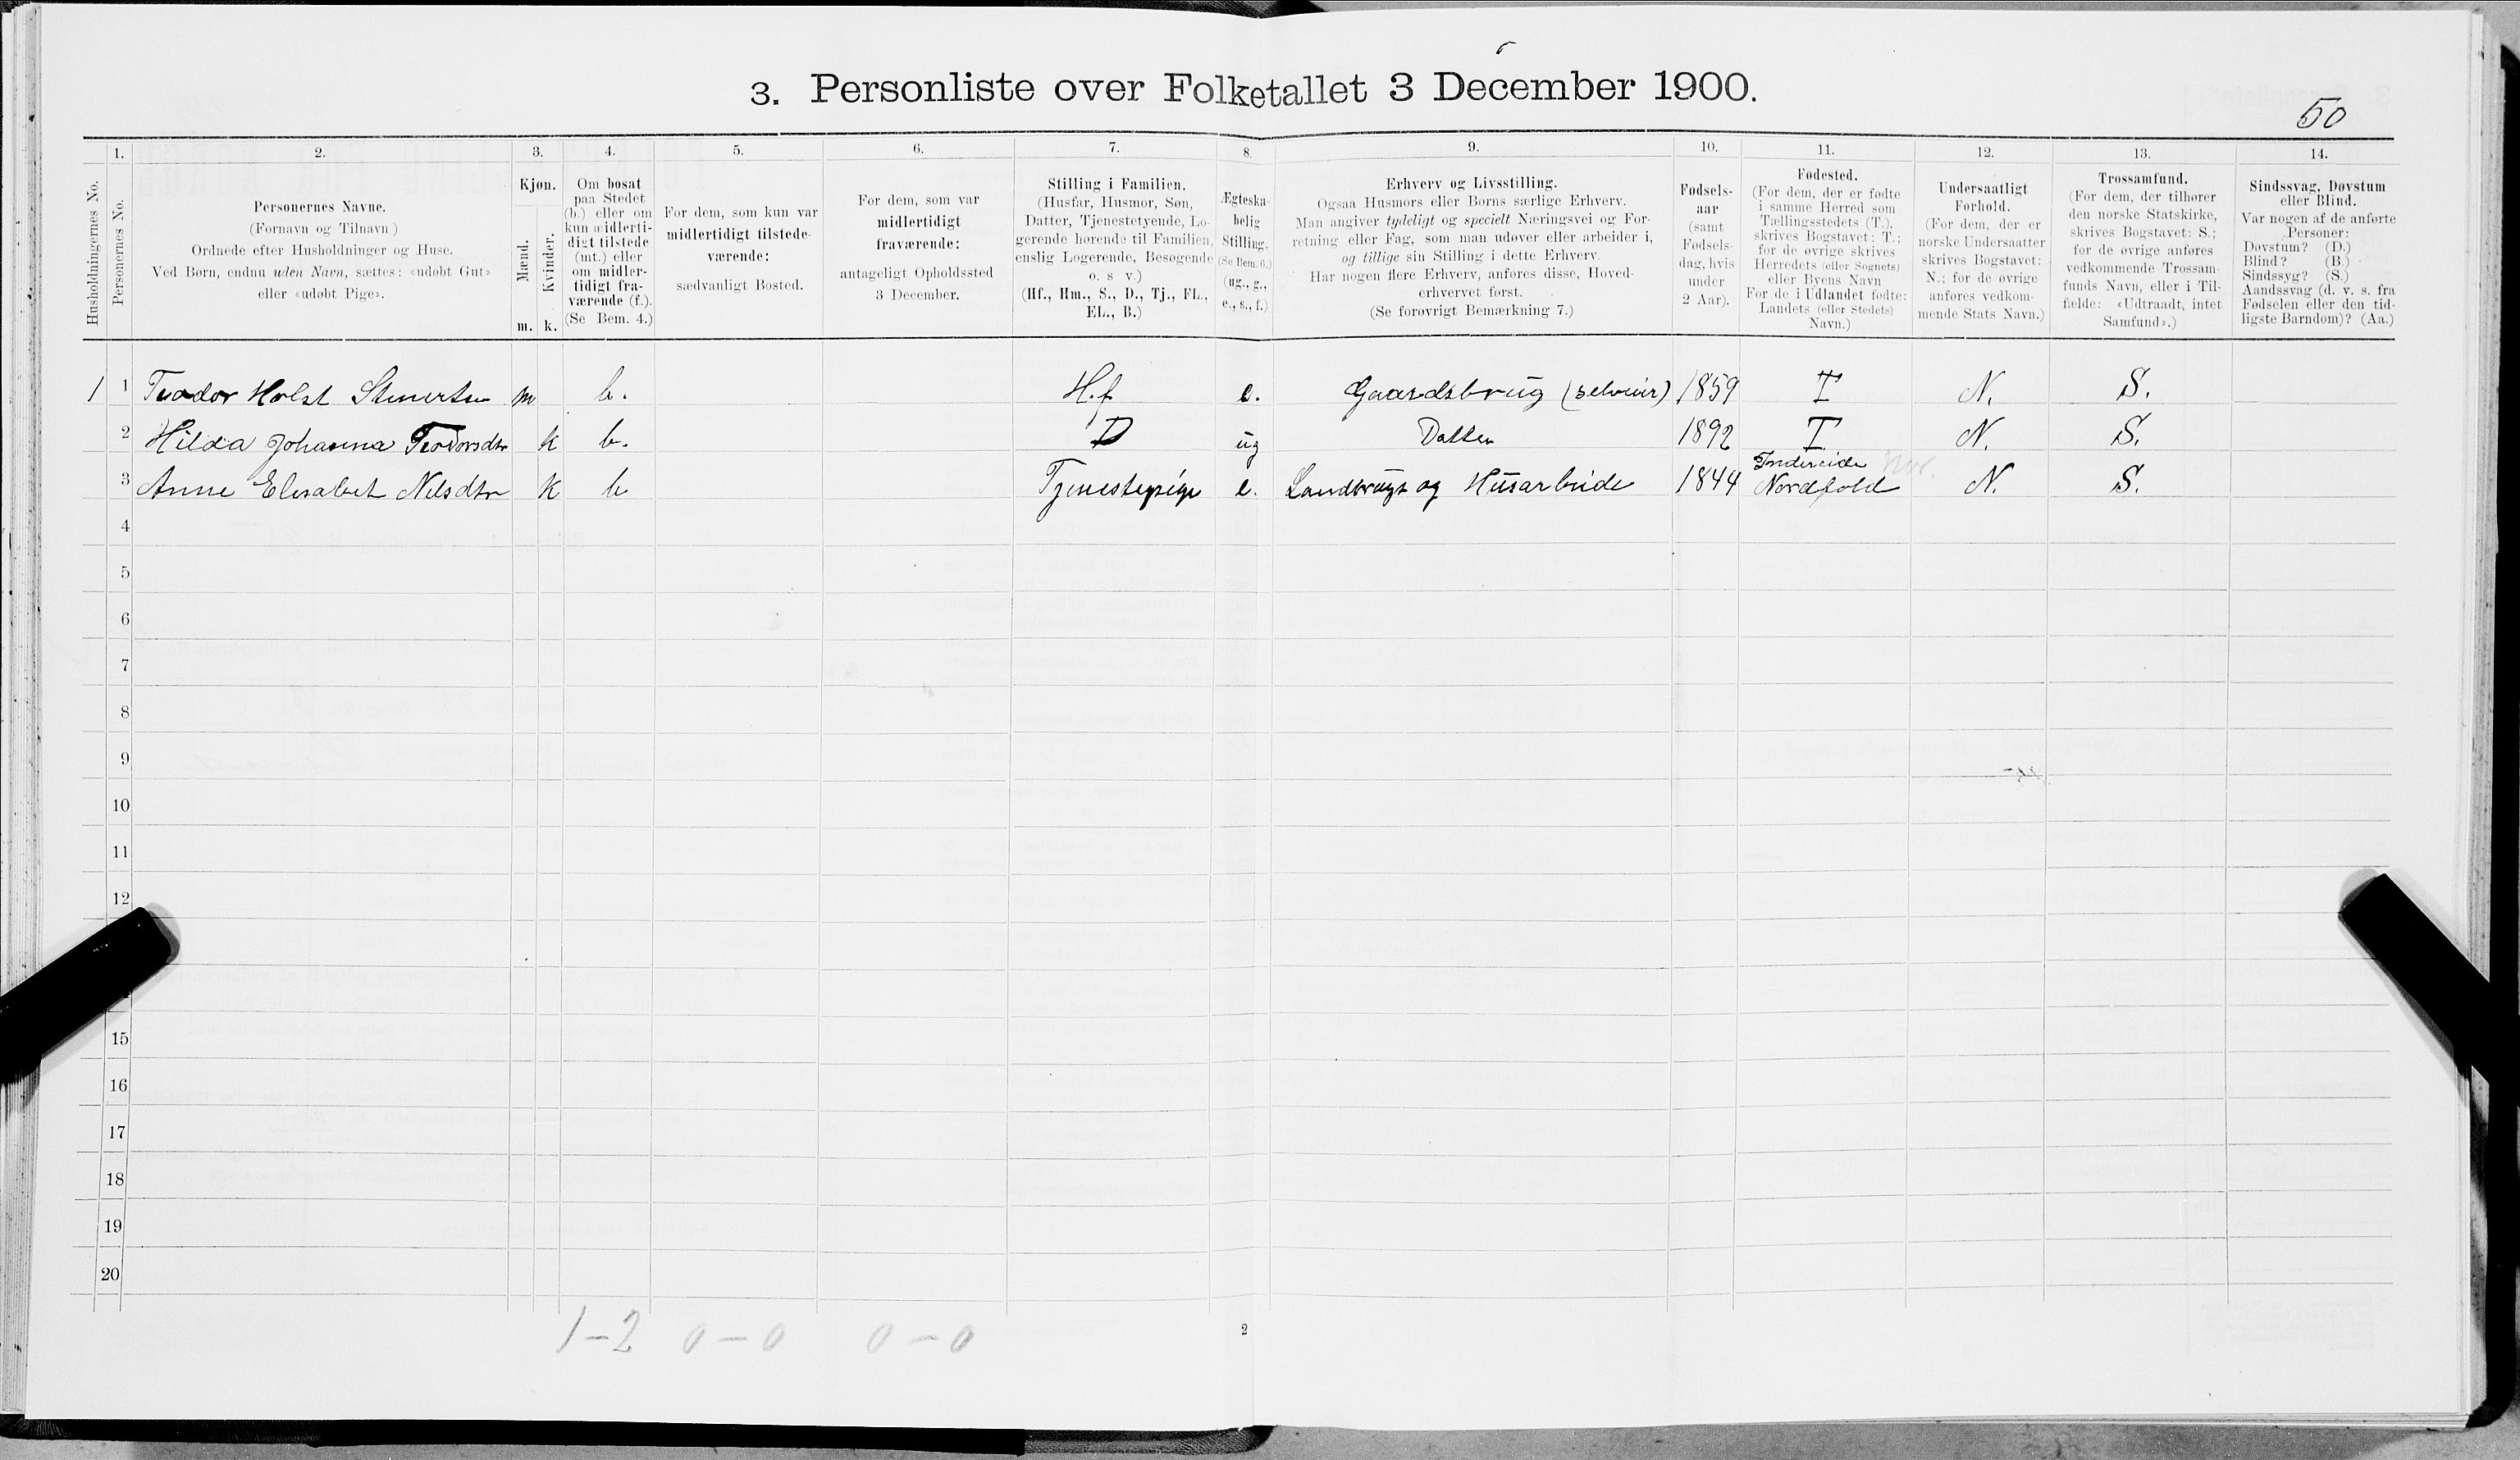 3. Personliste over Folketallet 3 December 1900.
50
1. 2. 3. 4. 5. 6. 7. 8. 9. 10. 11. 12. 13. 14.
Husholdningernes No.
Personernes No.
Personernes Navne.
(Fornavn og Tilnavn)
Ordnede efter Husholdninger og Huse.
Ved Børn, endnu uden Navn, sættes: «udøbt Gut»
eller «udøbt Pige».
Kjøn.
Mænd.
Kvinder.
m. k.
Om bosat
paa Stedet
(b.) eller om
kun midlerti-
digt tilstede
(mt.) eller
om midler-
tidigt fra-
værende (f.).
(Se Bem. 4.)
For dem, som kun var
midlertidigt tilstede-
værende:
sædvanligt Bosted.
For dem, som var
midlertidigt
fraværende:
antageligt Opholdssted
3 December.
Stilling i Familien.
(Husfar, Husmor, Søn,
Datter, Tjenestetyende, Lo-
gerende hørende til Familien,
enslig Logerende, Besøgende
o. s v.)
(Hf., Hm., S., D., Tj., FL.,
EL., B.)
Ægteska-
belig
Stilling.
(Se Bem. 6.)
(ug., g.,
e., s., f.)
Erhverv og Livsstilling.
Ogsaa Husmors eller Børns særlige Erhverv.
Man angiver tydeligt og specielt Næringsvei og For-
retning eller Fag, som man udøver eller arbeider i,
og tillige sin Stilling i dette Erhverv.
Har nogen flere Erhverv, anføres disse, Hoved-
erhvervet først.
(Se forøvrigt Bemærkning 7.)
Fødsels-
aar
(samt
Fødsels-
dag, hvis
under
2 Aar).
Fødested.
(For dem, der er fødte
i samme Herred som
Tællingsstedets (T.),
skrives Bogstavet: T.;
for de øvrige skrives
Herredets (eller Sognets)
eller Byens Navn
For de i Udlandet fødte:
Landets (eller Stedets)
Navn.)
Undersaatligt
Forhold.
(For dem, der er
norske Undersaatter
skrives Bogstavet:
N.; for de øvrige
anføres vedkom-
mende Stats Navn.)
Trossamfund.
(For dem, der tilhører
den norske Statskirke,
skrives Bogstavet: S.;
for de øvrige anføres
vedkommende Trossam-
funds Navn, eller i Til-
fælde: «Udtraadt, intet
Samfund».)
Sindssvag, Døvstum
eller Blind.
Var nogen af de anførte
Personer:
Døvstum? (D.)
Blind? (B.)
Sindssyg? (S.)
Aandssvag (d. v. s. fra
Fødselen eller den tid-
ligste Barndom)? (Aa.)
1 1 Teodor Holst m b. H.f e. Gaardsbrug (selveier) 1859 T N. S.
2 Hilda Johanna Teodorsdtr k b. D ug Datter 1892 T N. S.
3 Anne Elisabet Nilsdtr k b Tjenestepige e. Landbrugs og Husarbeide 1844 Nordfold N. S.
4
5
6
7
8
9
10
11
12
15
16
17
18
19
20
1-2 0-0 0-0
2